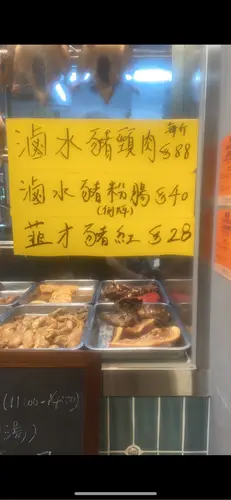 滷水豬頸肉 每斤 $88
滷水豬粉腸 $40
韮才豬紅 $28
(11:00-